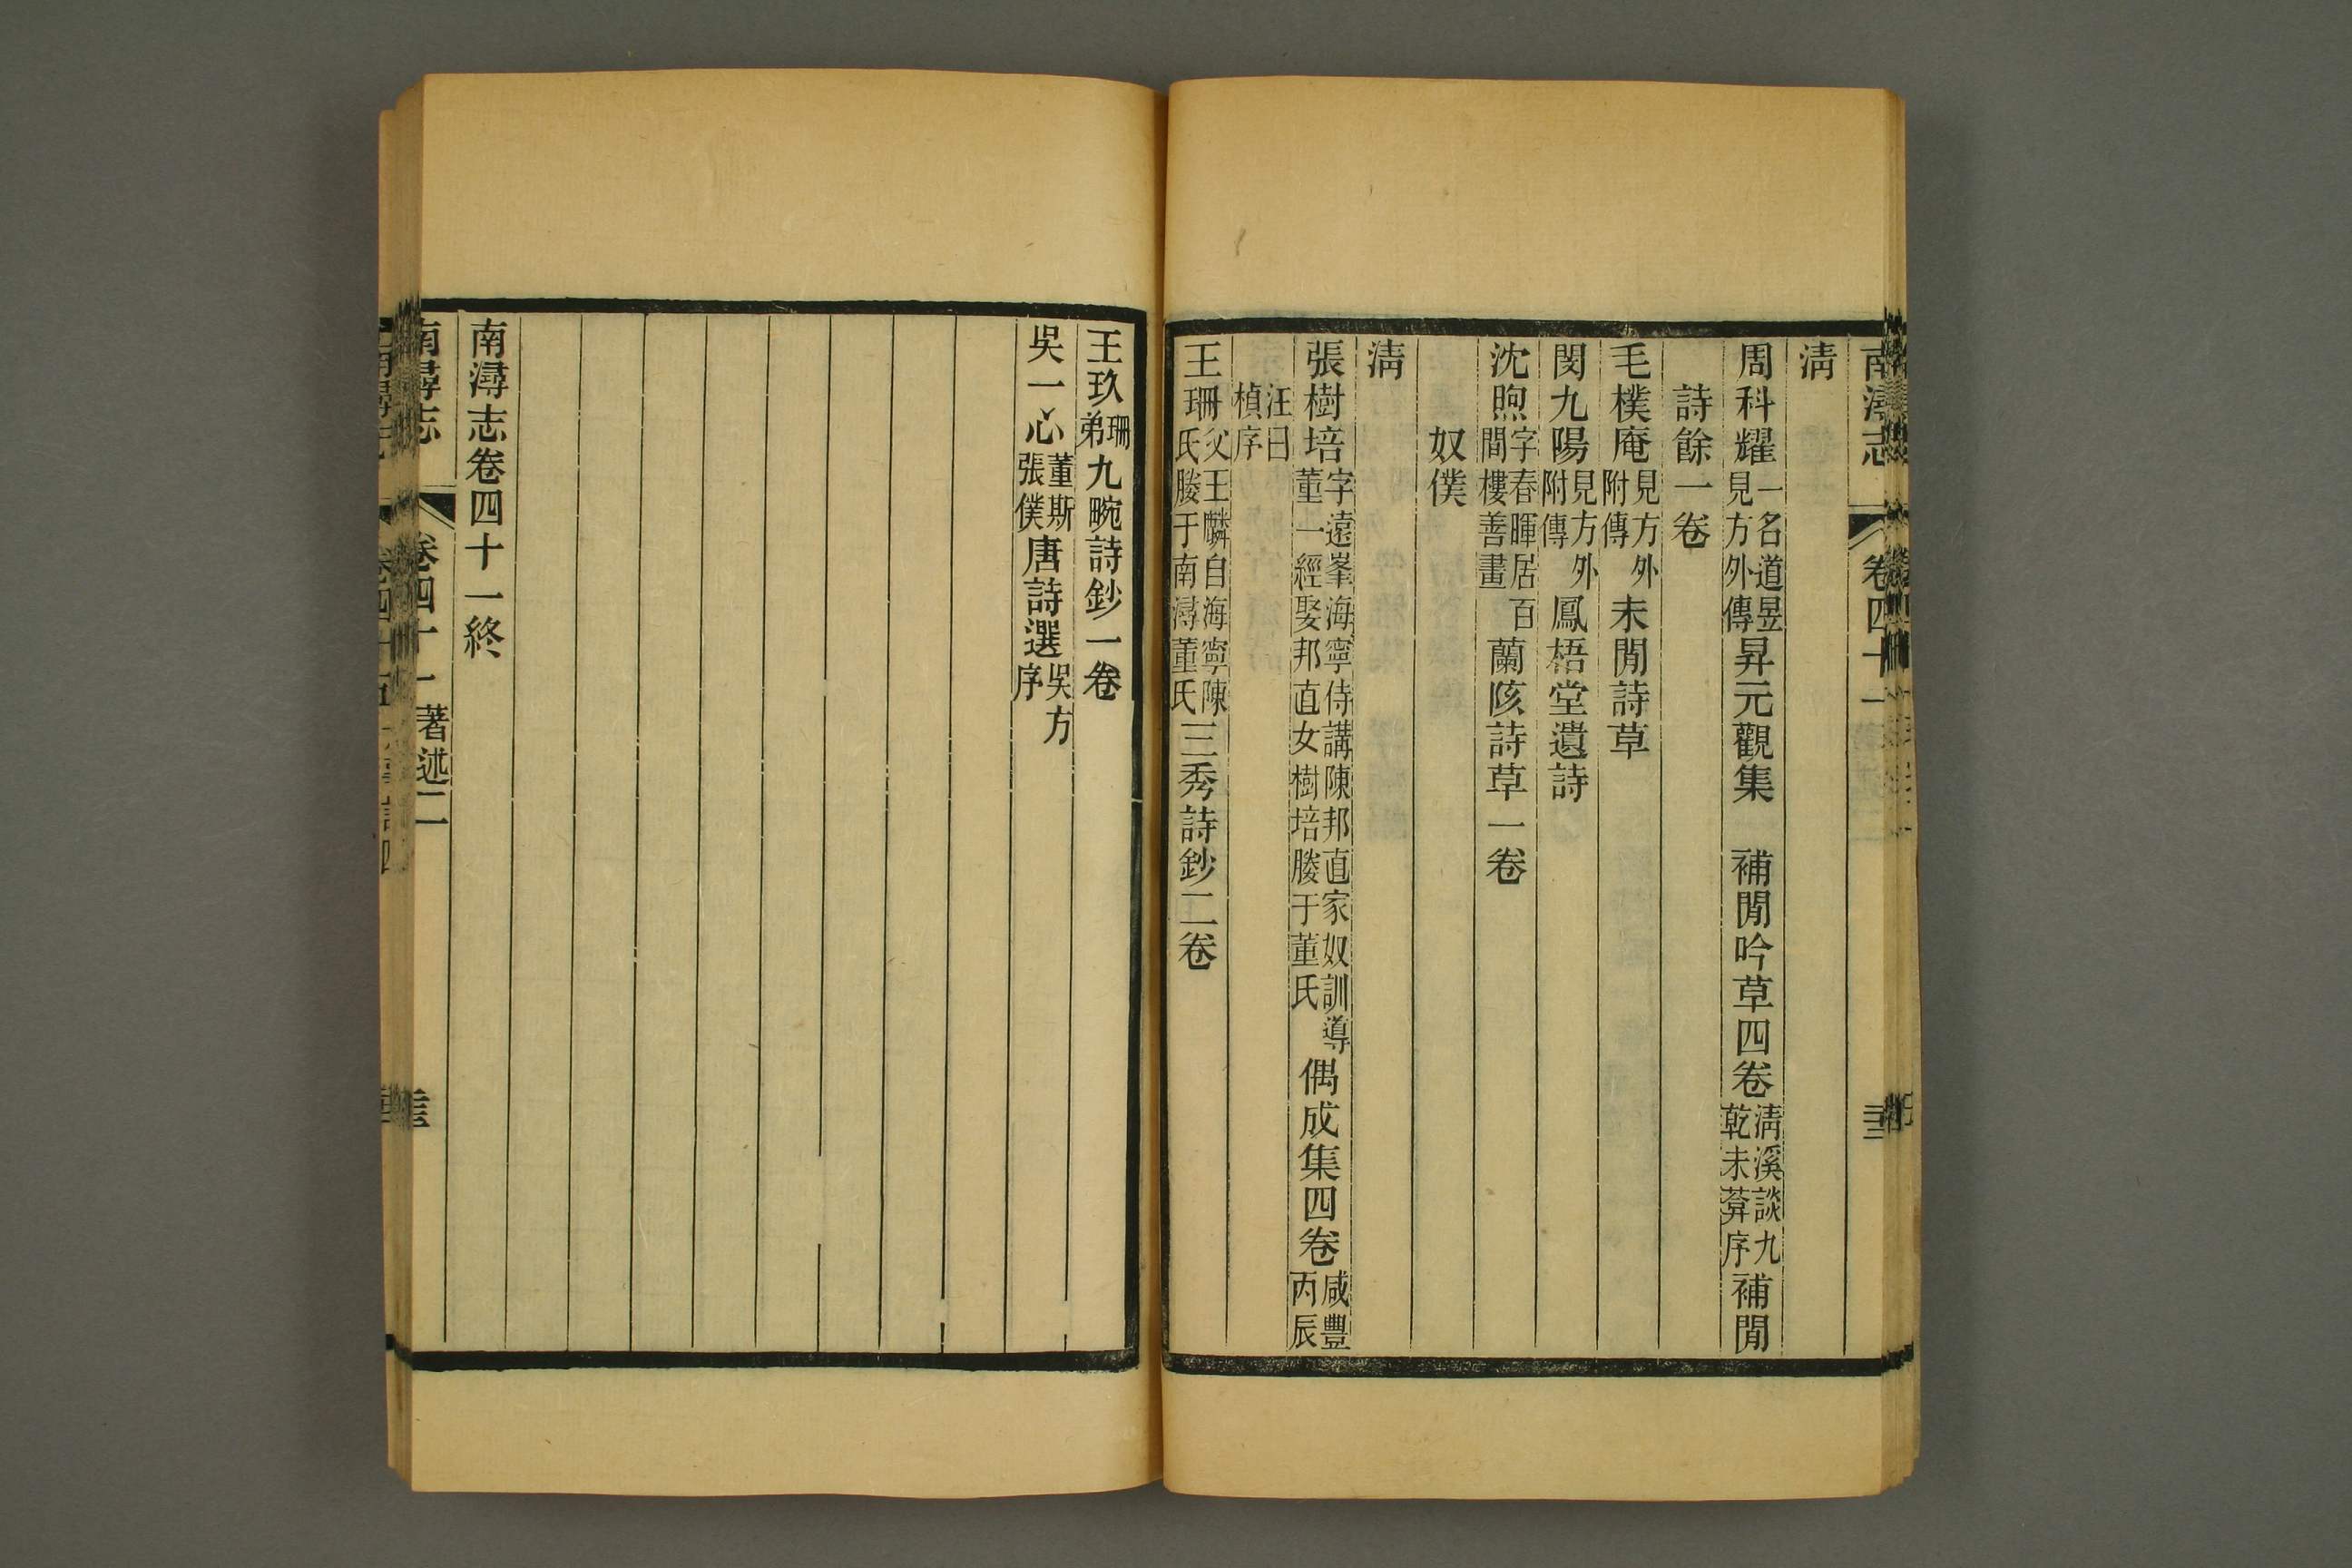 南潯志 卷四十一
清
周科耀一名道昱見方外傳昇元觀集 補閒吟草四卷清溪談九乾未葬序補閒
詩餘一卷
毛樸庵見方外附傳未閒詩草
閔九陽見方外附傳鳳梧堂遺詩
沈煦字春暉居百間樓善畫蘭陔詩草一卷
奴僕
清
張樹培字遠峯海寧侍講陳邦直家奴訓導董一經娶邦直女樹培媵于董氏偶成集四卷咸豐丙辰
汪曰楨序
王珊父王麟自海寧陳氏媵于南潯董氏三秀詩鈔二卷
王玖珊弟九畹詩鈔一卷
吳一心董斯張僕唐詩選吳方序
南潯志卷四十一終
南潯志 卷四十一 著述二